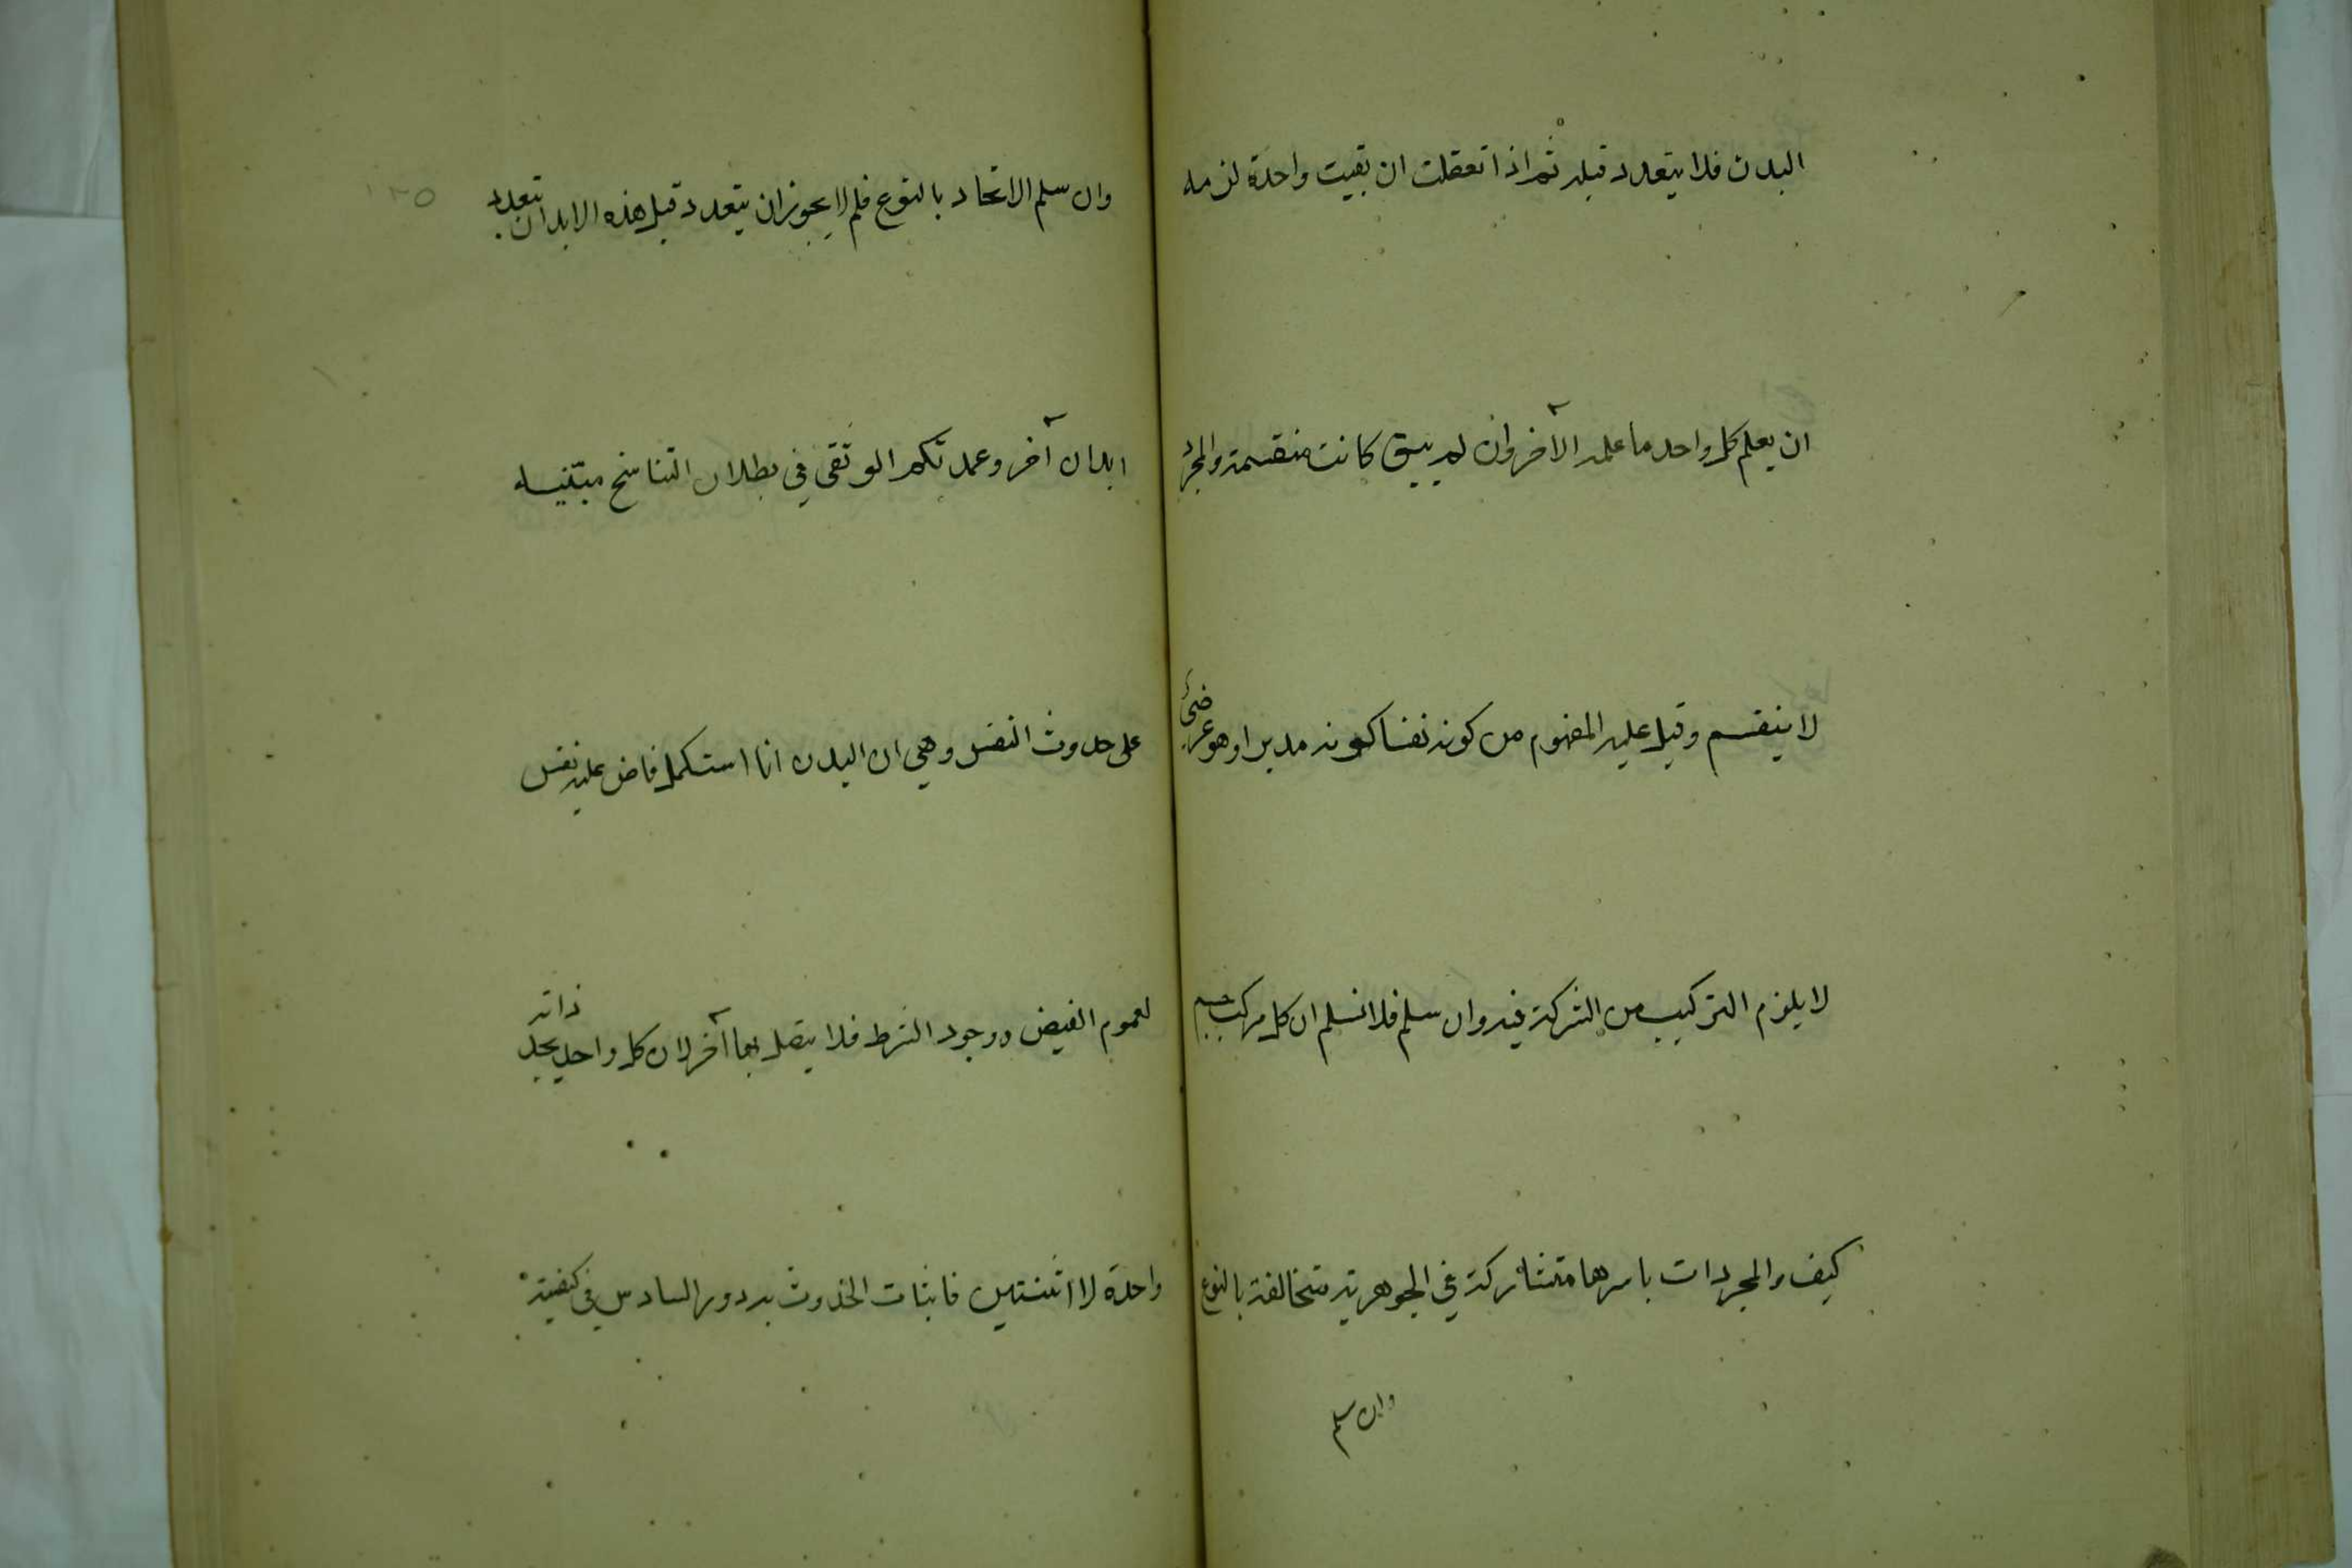 البدن فلا يتعدد قبله ثم اذا تعقلت ان بقيت واحدة لزمه
ان يعلم كل واحد ما علمه الآخر وان لم يبق كانت منقسمة والمجرد
لا ينقسم وقيل عليه المفهوم من كونه نفسا كونه مدبرا وهو عرضي
لا يلزم التركيب من الشركة فيه وان سلم فلا نسلم ان كل مركب جسم
كيف والمجردات باسرها متشاركة في الجوهرية متخالفة بالنوع
وان سلم
وان سلم الاتحاد بالنوع فلم لا يجوز ان يتعدد قبل هذه الابدان بتعدد
ابدان آخر وعمدتكم الوثقى في بطلان التناسخ مبتنية
على حدوث النفس وهي ان البدن اذا استكمل فاض عليه نفس
لعموم الفيض ووجود الشرط فلا يتصل بها آخر لان كل واحد يجد ذاته
واحدة لا اثنتين فاثبات الحدوث به دور السادس في كيفية